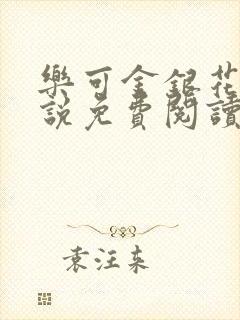 樂可金銀花
說免費閱讀
袁汪来